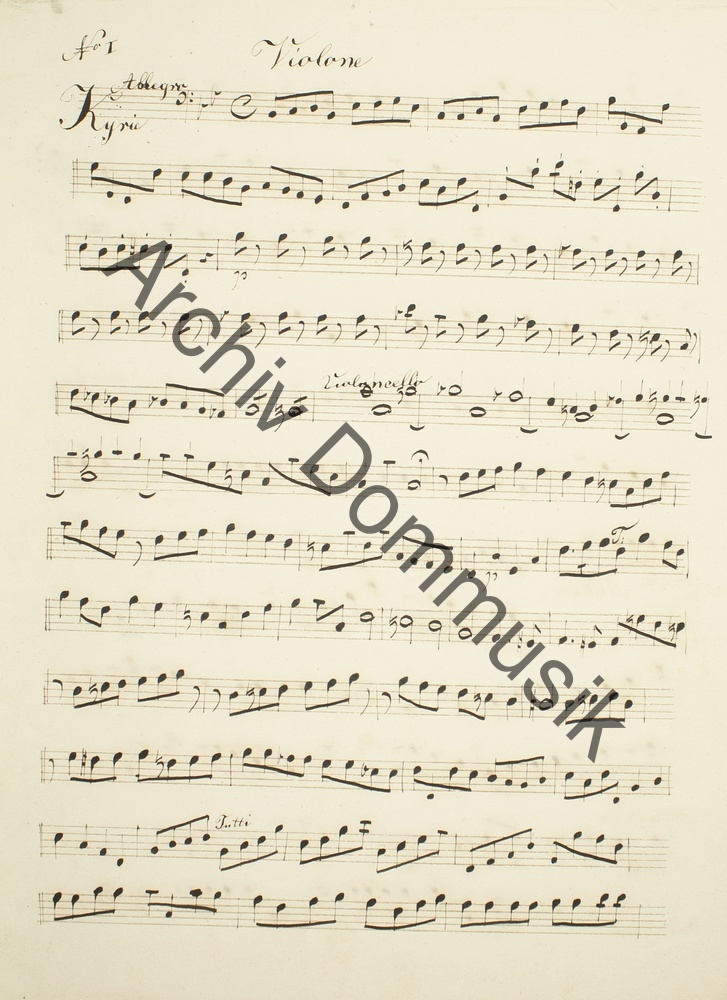 No I
Violone
Allegro
Kyrie
pp
Violoncello
pp
T.
Tutti
Archiv Dommusik